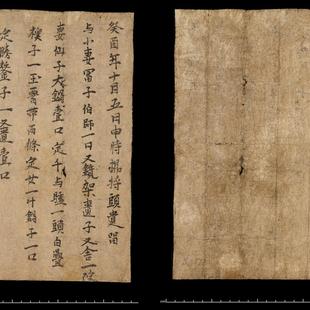 癸酉年十月五日申時楊將頭遺留
与小妻富子伯師一口又鏡架匱子又舍一院
妻仙子大鍋壹口定千与驢一頭白疊
襖子一玉腰帶两條定女一斗鍋子一口
定勝鏊子一又匱壹口